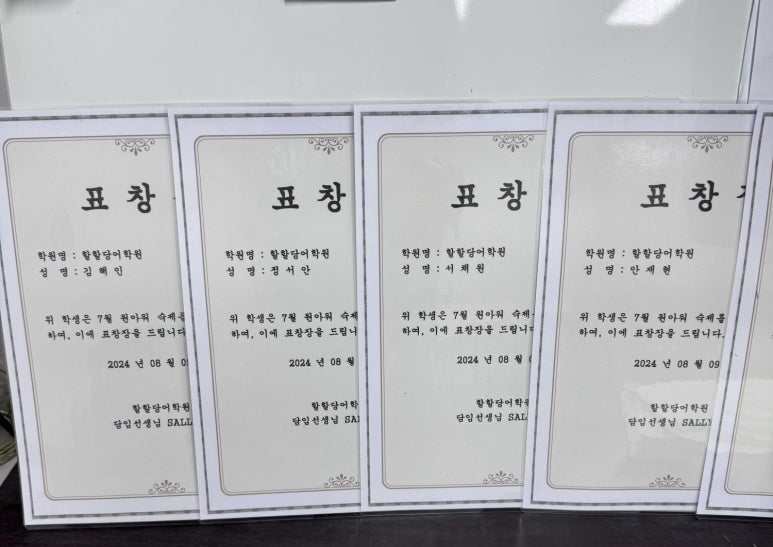 표 창
학원명 : 할할당어학원
성 명 : 김해인
위 학생은 7월 원아워 숙제를
하여, 이에 표창장을 드립니다
2024 년 08 월
할할당어학원
담임선생님 SALLY
표 창
학원명 : 할할당어학원
성 명 : 정서안
위 학생은 7월 원아워 숙제
하여, 이에 표창장을 드립니다
2024 년 08 월
할할당어학
담임선생님
표 창
학원명 : 할할당어학원
성 명 : 서채원
위 학생은 7월 원아워 숙제
하여, 이에 표창장을 드립니
2024 년 08 월
할할당어학
담임선생님
표 창
학원명 : 할할당어학원
성 명 : 안재현
위 학생은 7월 원아워 숙제를
하여, 이에 표창장을 드립니다.
2024 년 08 월 09
할할당어학원
담임선생님 SALLY